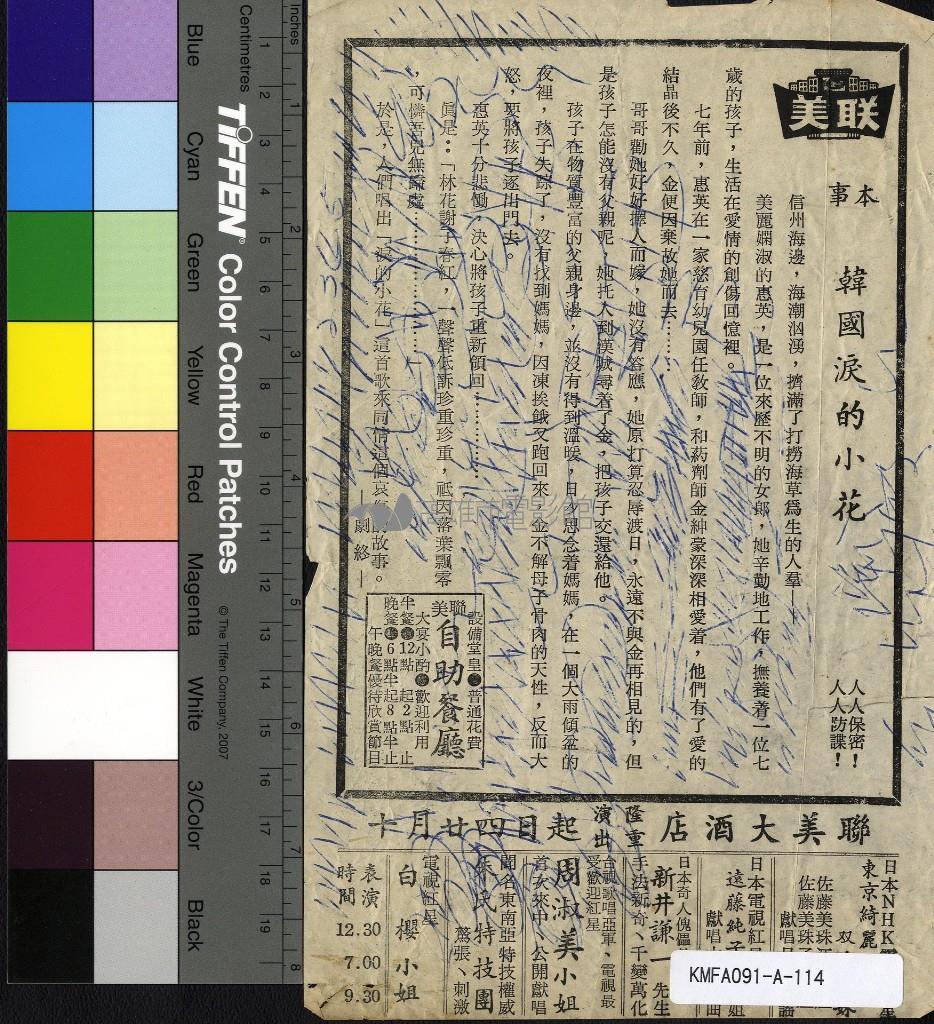 Inches
Centimetres
TIFFEN® Color Control Patches
© The Tiffen Company, 2007
Blue
Cyan
Green
Yellow
Red
Magenta
White
3/Color
Black
美联
本事
韓國淚的小花
人人保密！
人人防諜！
信州海邊，海潮汹湧，擠滿了打撈海草爲生的人羣——
美麗嫻淑的惠英，是一位來歷不明的女郎，她辛勤地工作，撫養着一位七
歲的孩子，生活在愛情的創傷回憶裡。
七年前，惠英在一家慈育幼兒園任教師，和葯劑師金紳豪深深相愛着，他們有了愛的
結晶後不久，金便因棄故她而去………
哥哥勸她好好擇人而嫁，她沒有答應，她原打算忍辱渡日，永遠不與金再相見的，但
是孩子怎能沒有父親呢，她托人到漢城尋着了金，把孩子交還給他。
孩子在物質豐富的父親身邊，並沒有得到溫暖，日夕思念着媽媽，在一個大雨傾盆的
夜裡，孩子失踪了，沒有找到媽媽，因凍挨餓又跑回來，金不解母子骨肉的天性，反而大
怒，要將孩子逐出門去。
惠英十分悲慟，決心將孩子重新領回………
眞是：「林花謝了春紅，一聲聲低訴珍重珍重，祇因落葉飄零
，可憐吾兒無歸處…………」
於是，人們唱出「淚的小花」這首歌來同情這個哀
故事。
—劇終—
設備堂皇●普通花費
美聯
自助餐廳
大宴小酌●歡迎利用
午餐●12點起2點止
晚餐●6點半起8點半止
午晚餐優待欣賞節目
聯美大酒店
隆重演出
十月廿四日起
日本NHK
東京綺麗
佐藤美珠
佐藤美珠
獻唱
日本電視紅
遠藤純子
獻唱
日本奇人傀儡
新井謙一先生
手法新奇、千變萬化
台視歌唱亞軍、電視最
受歡迎紅星
周淑美小姐
首次來中、公開獻唱
聞名東南亞特技權威
特技團
驚張、刺激
電視紅星
白櫻小姐
表演時間
12.30
7.00
9.30
高雄市電影館
KMFA091-A-114